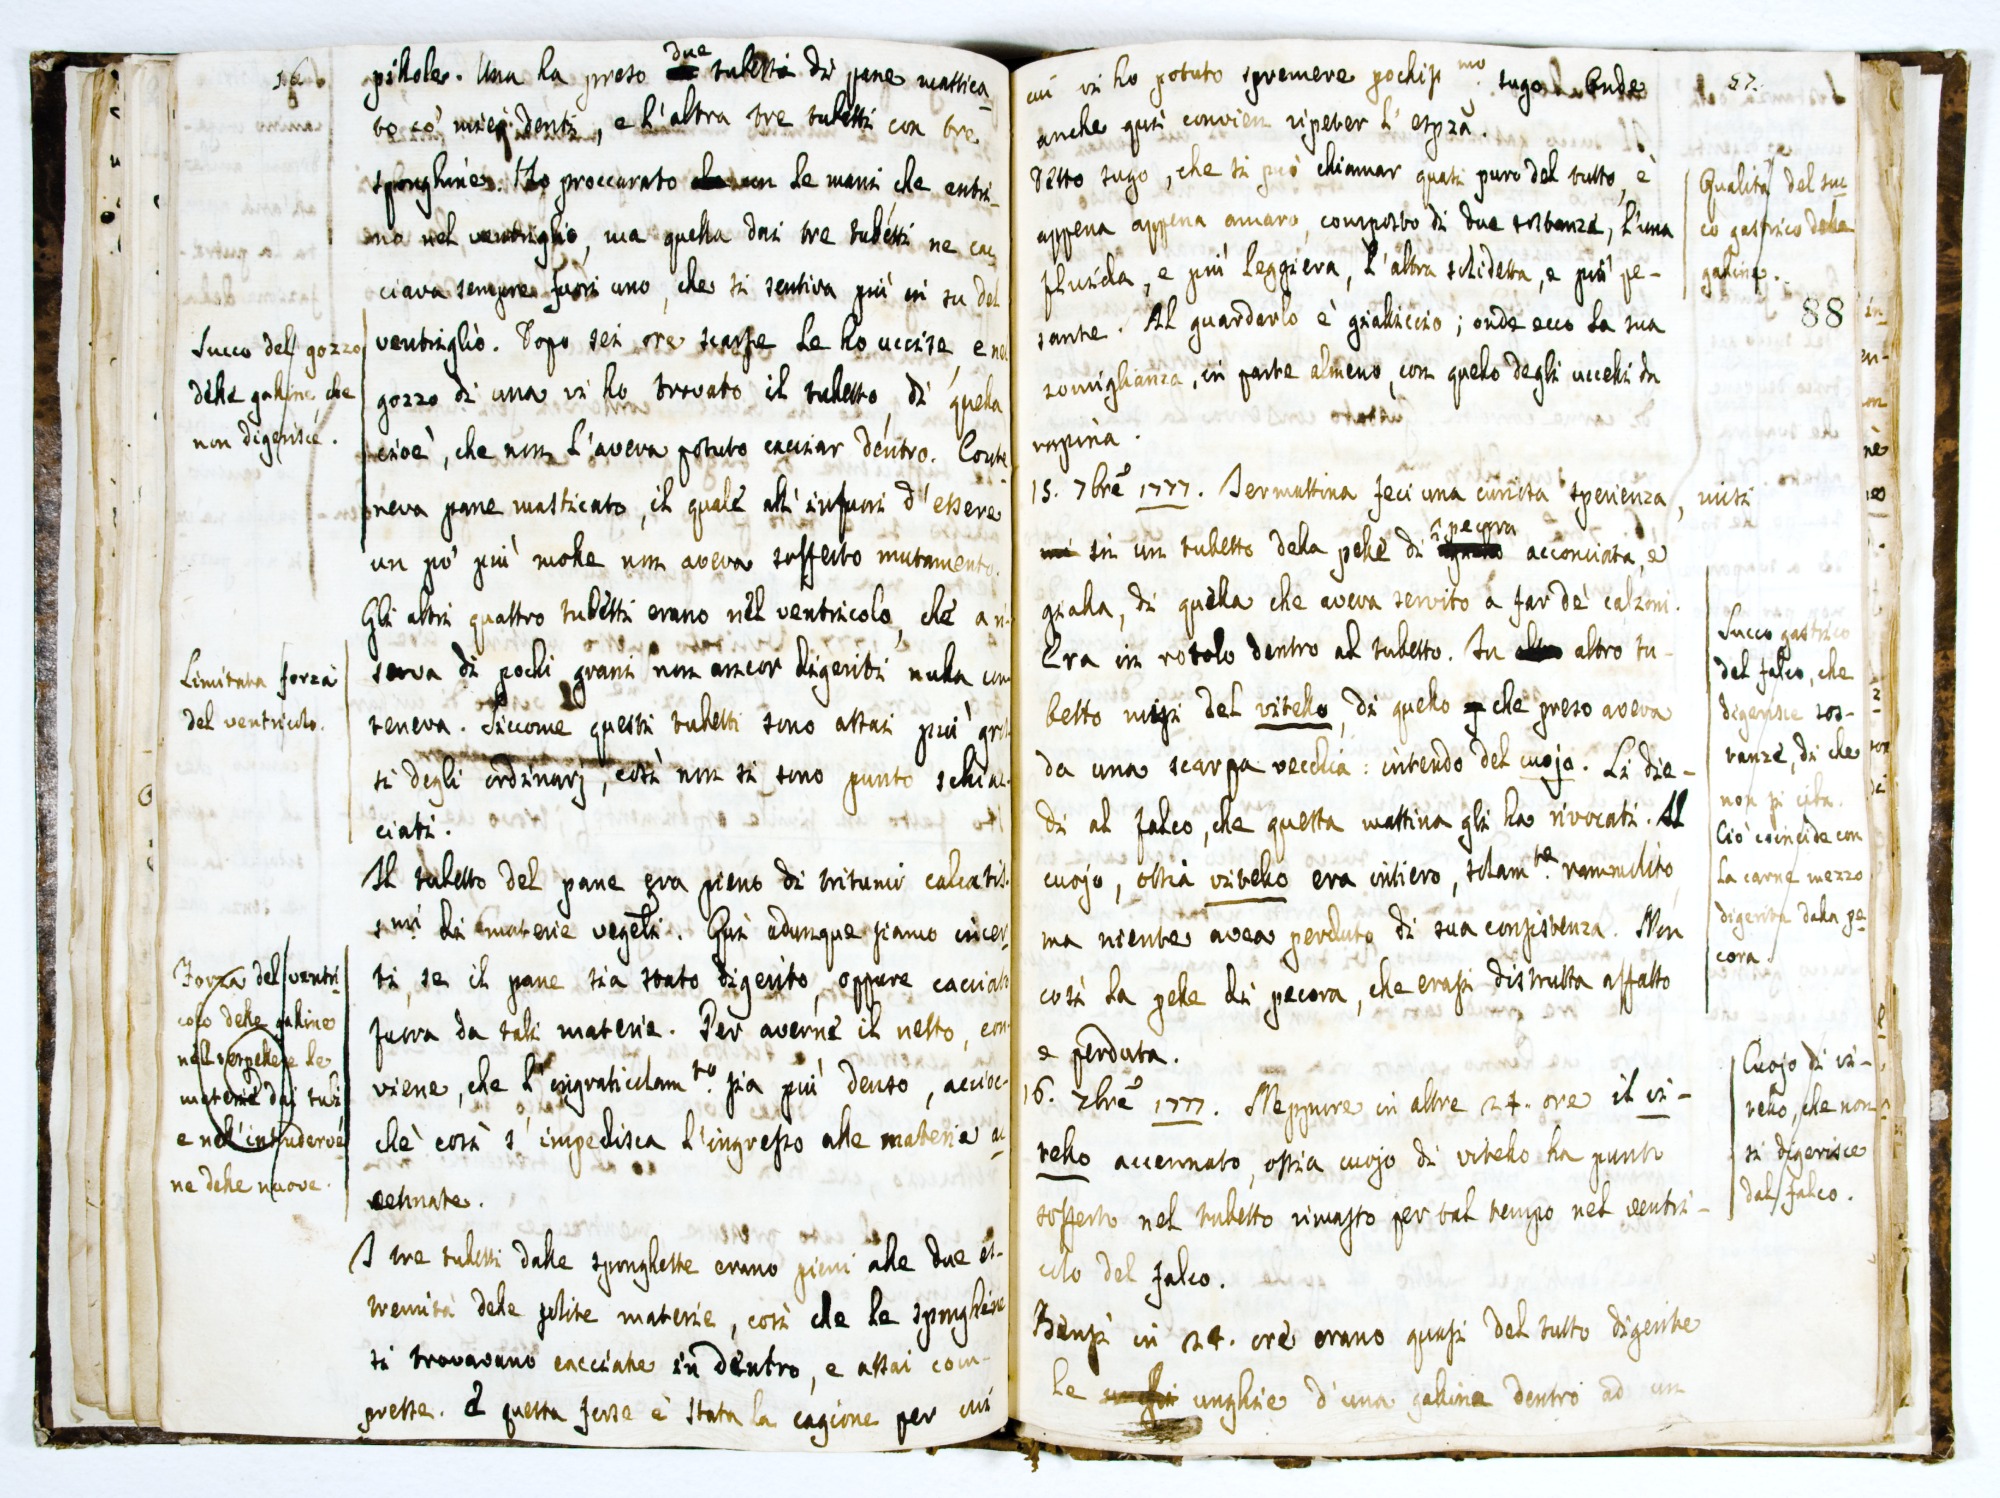 16.
pillole. Una ha preso due tubetti di pane mastica-
to co' miei denti, e l'altra tre tubetti con tre
sponghine. Ho proccurato con le mani che entri-
no nel ventriglio, ma quella dai tre tubetti ne cac
ciava sempre fuori uno, che si sentiva più in su del
ventriglio. Dopo sei ore scarse le ho uccise, e nel
gozzo di una vi ho trovato il tubetto, di quella
cioè, che non l'aveva potuto cacciar dentro. Conte
neva pane masticato, il quale all'infuori d'essere
un po' più molle non aveva sofferto mutamento.
Gli altri quattro tubetti erano nel ventricolo, che a ri-
serva di pochi grani non ancor digeriti nulla con
teneva. Siccome questi tubetti sono assai più gros
si degli ordinarj, così non si sono punto schiac-
ciati.
Il tubetto del pane era pieno di tritumi calcatis-
smi di materie vegetli. Quì adunque siamo incer-
ti, se il pane sia stato digerito, oppure cacciato
fuora da tali materie. Per averne il netto, con-
viene, che l'ingraticolam.to sia più denso, accioc-
chè così s'impedisca l'ingresso alle materie ac
cennate.
I tre tubetti dalle sponghette erano pieni alle due es-
tremità delle solite materie, così che le sponghine
si trovavano cacciate in dentro, e assai com-
presse. E questa forse è stata la cagione per cui
Succo del gozzo
delle galline, che
non digerisce.
Limitata forza
del ventricolo.
Forza del ventri-
colo delle galline
nell'espellere le
materie dai tubi
e nell'intrudervé
ne delle nuove.
57.
cui vi ho potuto spremere pochiss.mo sugo. Onde
anche quì convien ripeter l'espza.
Detto sugo, che si può chiamar quasi puro del tutto, è
appena appena amaro, composto di due sostanze, l'una
fluida, e più leggiera, l'altra solidetta, e più pe-
sante. Al guardarlo è gialliccio; onde ecco la sua
somiglianza, in parte almeno, con quello degli uccelli di
rapina.
15. 7bre 1777. Sermattina feci una curiosa sperienza, misi
in un tubetto della pelle di pecora acconciata, e
gialla, di quella che aveva servito a far de' calzoni.
Era in rotolo dentro al tubetto. In altro tu-
betto misi del vitello, di quello che preso aveva
da una scarpa vecchia: intendo del cuojo. Li die-
di al falco, che questa mattina gli ha rivocati. Il
cuojo, ossia vitello era intiero, solam.te rammolito,
ma niente avea perduto di sua consistenza. Non
così la pelle di pecora, che erasi distrutta affatto
e perduta.
16. 7bre 1777. Neppure in altre 24. ore il vi-
tello accennato, ossia cuojo di vitello ha punto
sofferto nel tubetto rimasto per tal tempo nel ventri-
colo del falco.
Bensì in 24. ore erano quasi del tutto digerite
le unghie d'una gallina dentro ad un
Qualità del suc
co gastrico delle
galline.
88
Succo gastrico
del falco, che
digerisce sos-
tanze, di che
non si ciba.
Ciò coincide con
la carne mezzo
digerita dalla pe
cora.
Cuojo di vi-
tello, che non
si digerisce
dal falco.